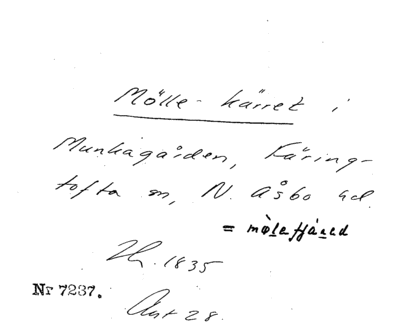 Mölle-kärret i
Munkagården, Färing-
tofta sn, N. Åsbo hd.
= mòlatjàred
Nr 7237.